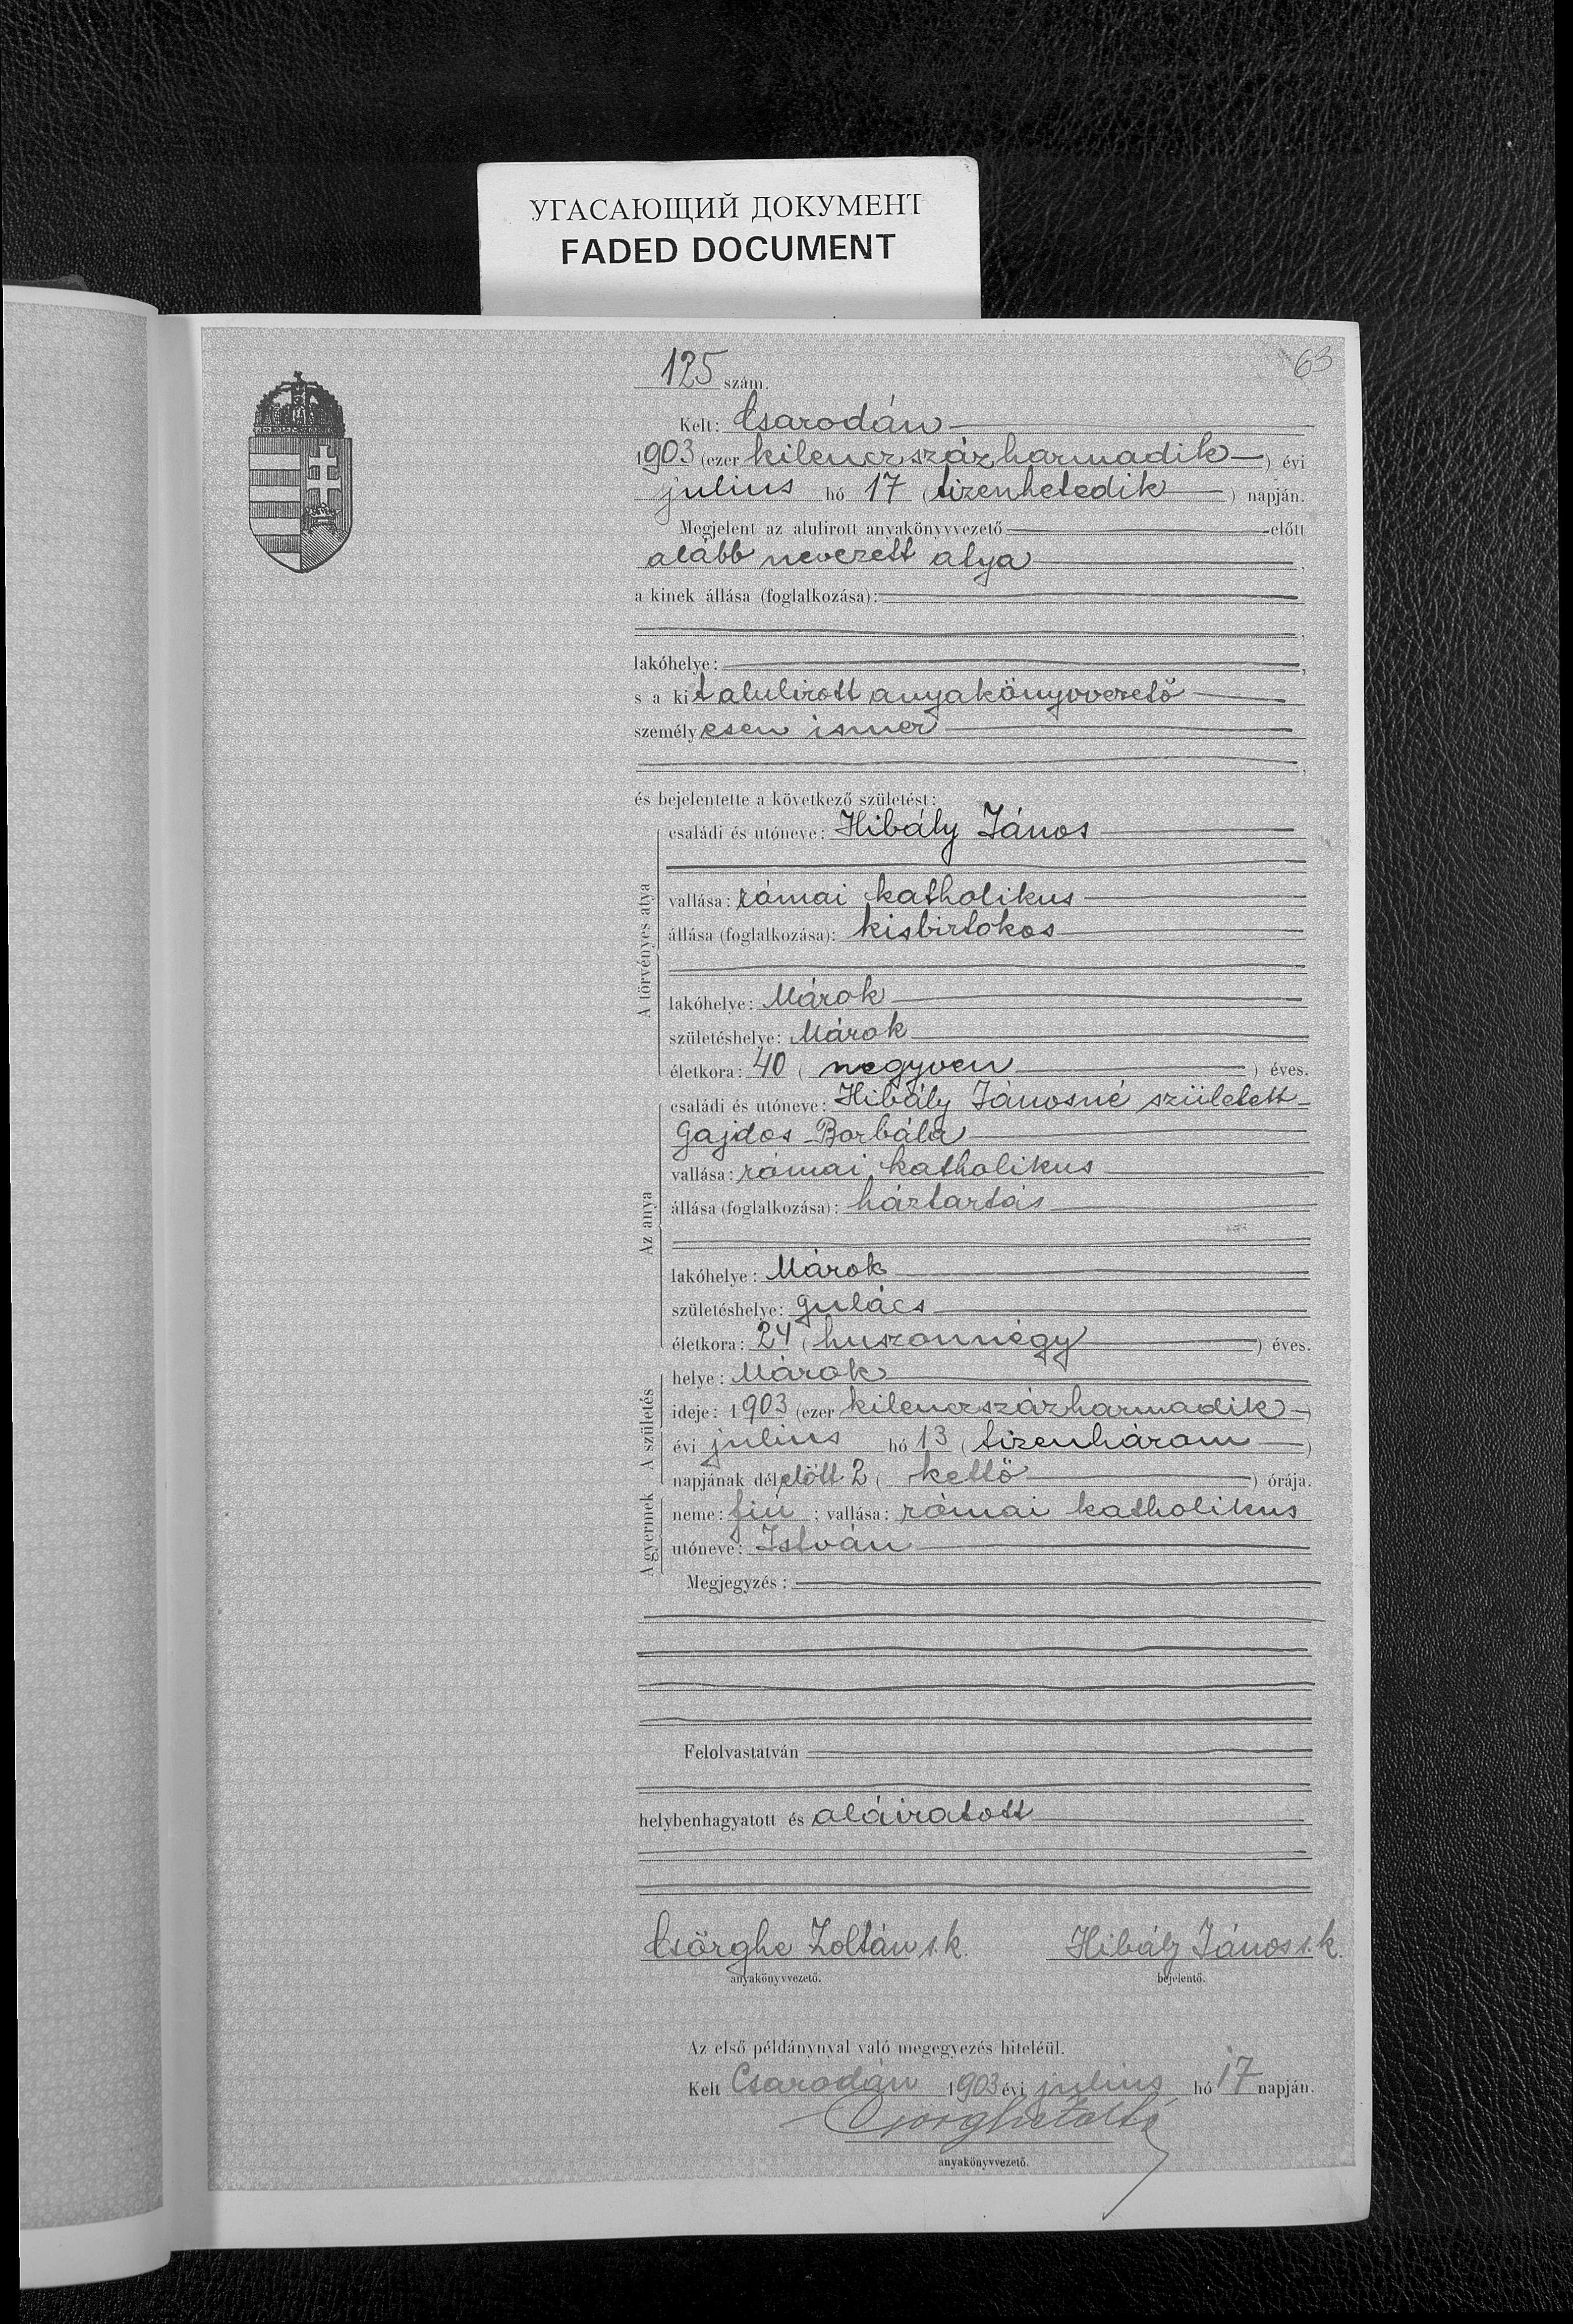 УГАСАЮЩИЙ ДОКУМЕНТ
FADED DOCUMENT
63
125 szám.
Kelt: Csarodán
1903 (ezer kilenczszázharmadik) évi
julius hó 17 (tizenhetedik) napján.
Megjelent az alulirott anyakönyvvezető előtt
alább nevezett atya,
a kinek állása (foglalkozása):
,
lakóhelye: ,
s a kit alulirott anyakönyvvezető
személyesen ismer
,
és bejelentette a következő születést:
A törvényes atya
családi és utóneve: Hibály János
vallása: római katholikus
állása (foglalkozása): kisbirtokos
lakóhelye: Márok
születéshelye: Márok
életkora: 40 (negyven) éves.
Az anya
családi és utóneve: Hibály Jánosné született
Gajdos Borbála
vallása: római katholikus
állása (foglalkozása): háztartás
lakóhelye: Márok
születéshelye: Gulács
életkora: 24 (huszonnégy) éves.
A születés
helye: Márok
ideje: 1903 (ezer kilenczszázharmadik)
évi julius hó 13 (tizenhárom)
napjának délelőtt 2 (kettő) órája.
A gyermek
neme: fiú; vallása: római katholikus
utóneve: István
Megjegyzés:
Felolvastatván
helybenhagyatott és aláiratott
Csörghe Zoltán s.k. Hibály János s.k.
anyakönyvvezető. bejelentő.
Az első példánynyal való megegyezés hiteléül.
Kelt Csarodán 1903 évi julius hó 17 napján.
Csörghe Zoltán
anyakönyvvezető.